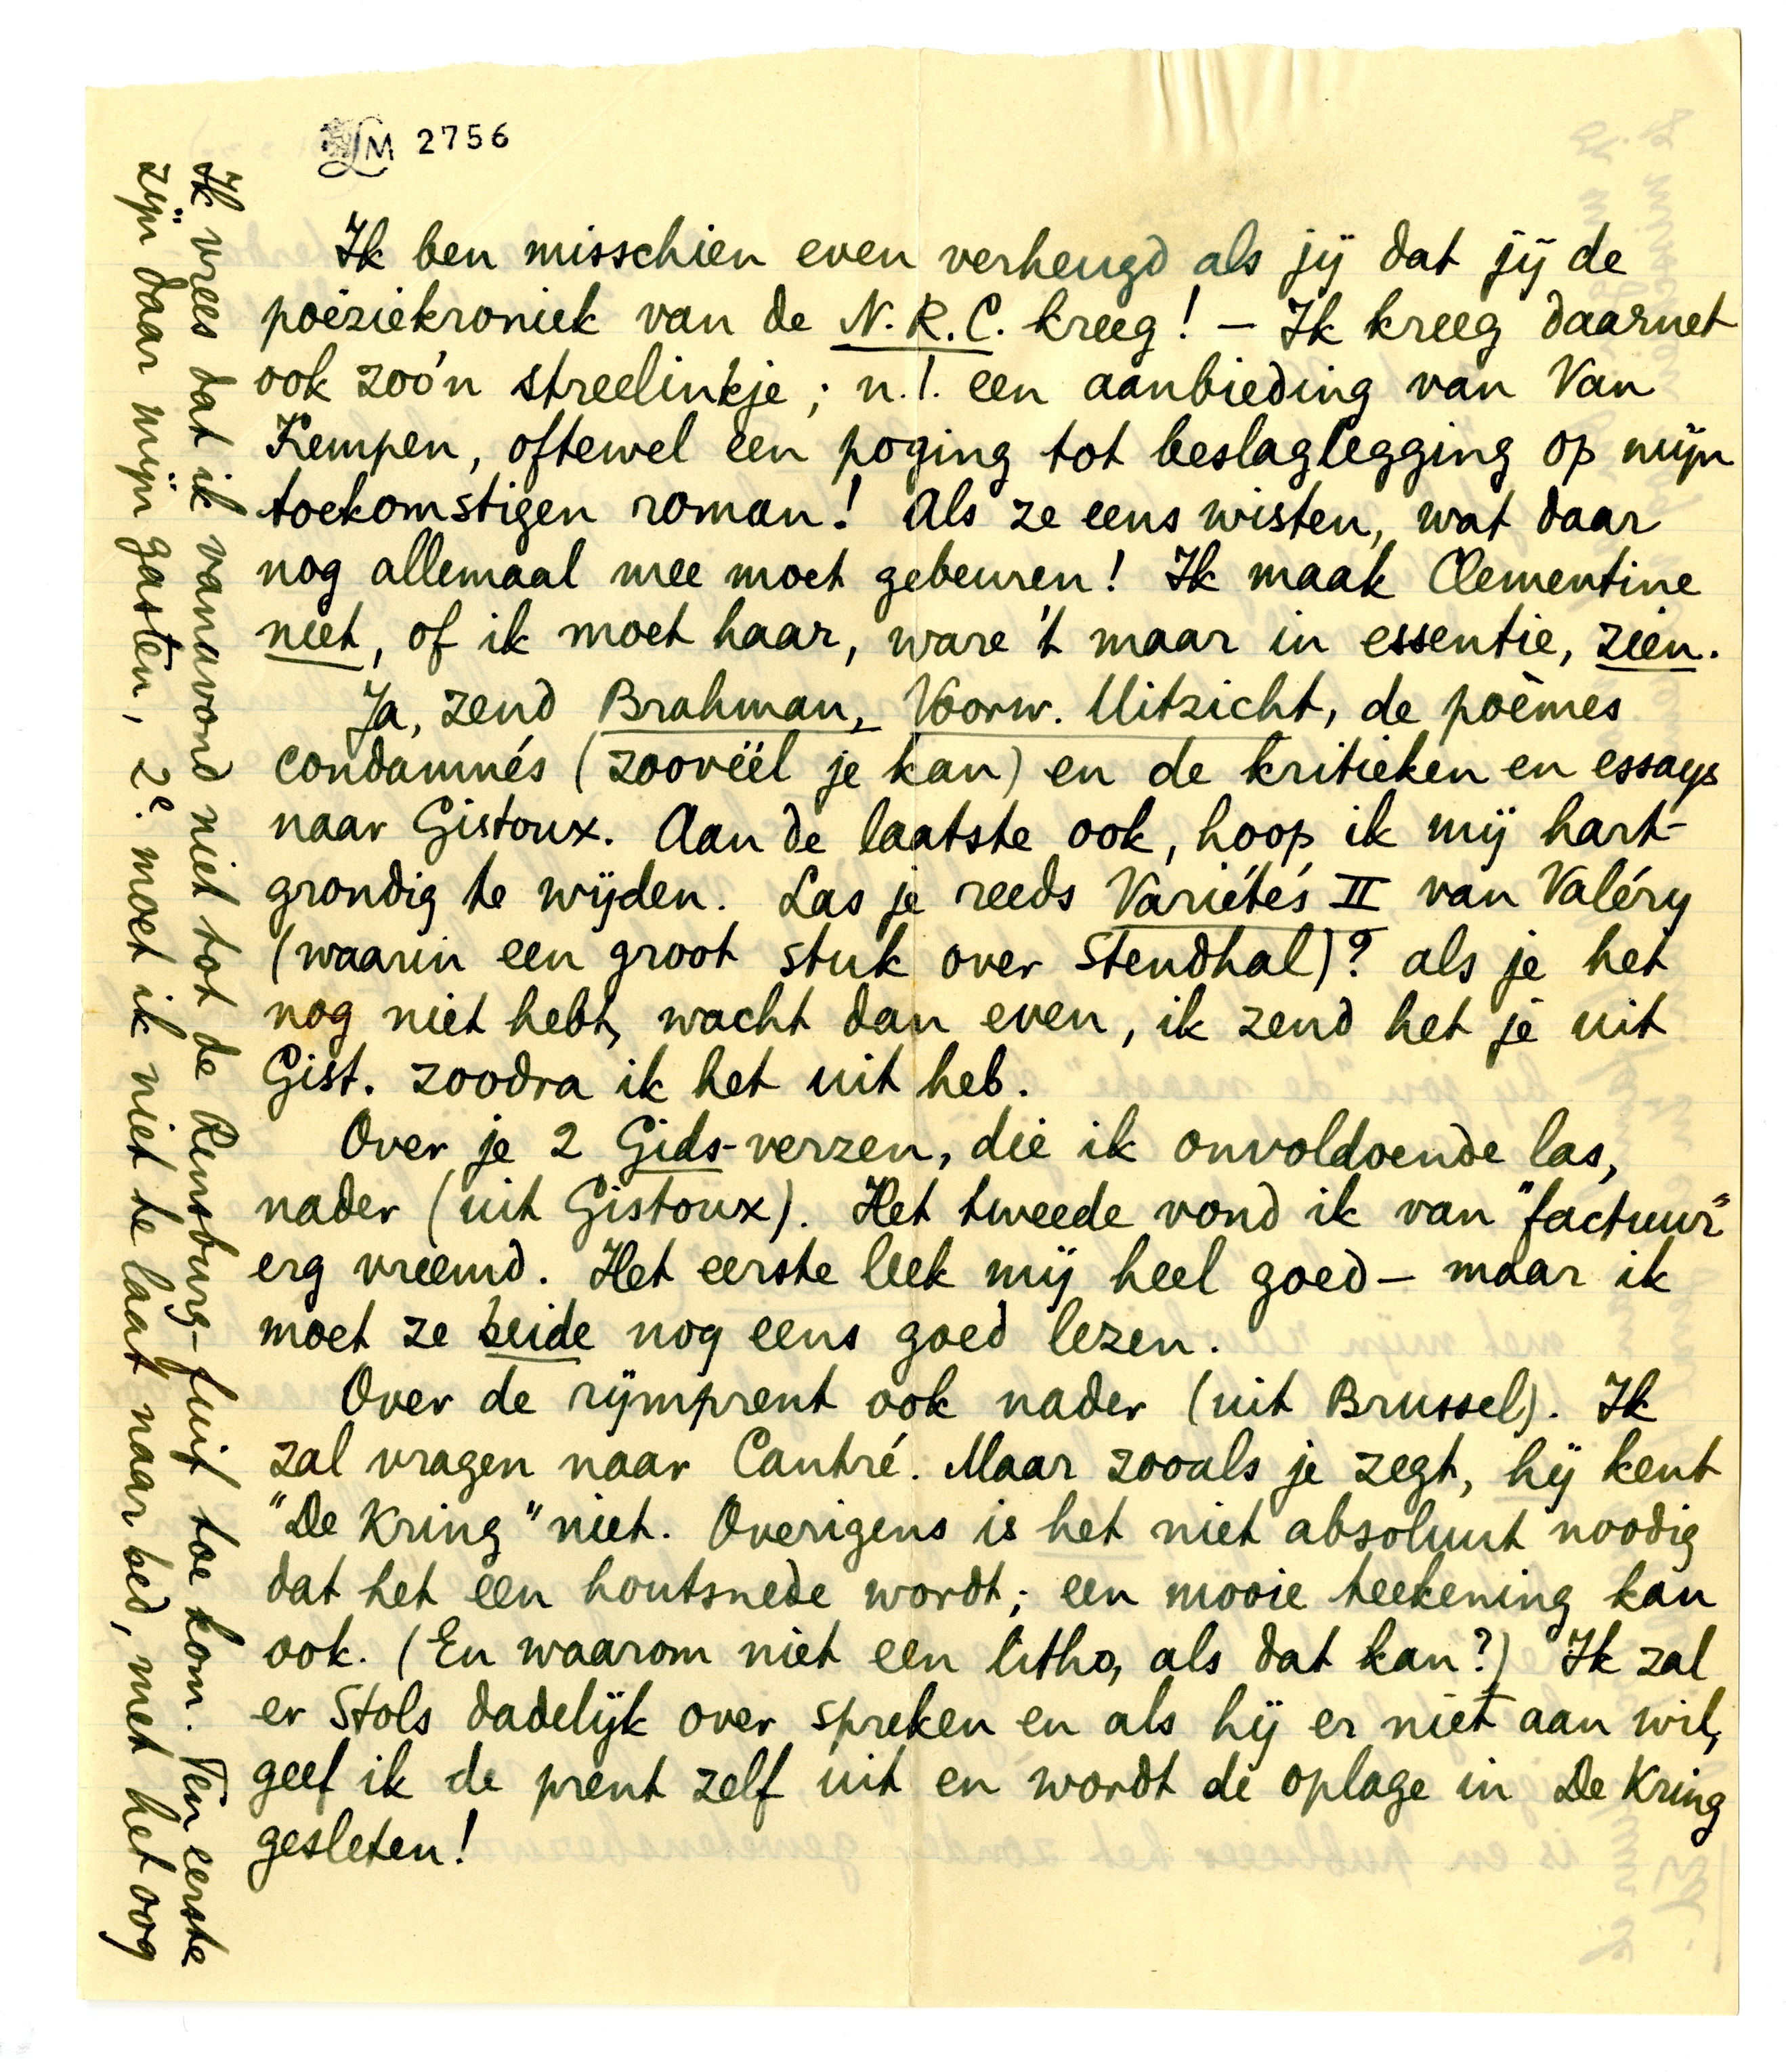 LM 2756
Ik ben misschien even verheugd als jij dat jij de
poëziekroniek van de N.R.C. kreeg! – Ik kreeg daarnet
ook zoo'n streelinkje; n.l. een aanbieding van Van
Kempen, oftewel een poging tot beslaglegging op mijn
toekomstigen roman! Als ze eens wisten, wat daar
nog allemaal mee moet gebeuren! Ik maak Clementine
niet, of ik moet haar, ware 't maar in essentie, zien.
Ja, zend Brahman, Voorw. Uitzicht, de poèmes
condamnés (zoovéél je kan) en de kritieken en essays
naar Gistoux. Aan de laatste ook, hoop ik mij hart-
grondig te wijden. Las je reeds Variétés II van Valéry
(waarin een groot stuk over Stendhal)? als je het
nog niet hebt, wacht dan even, ik zend het je uit
Gist. zoodra ik het uit heb.
Over je 2 Gids-verzen, die ik onvoldoende las,
nader (uit Gistoux). Het tweede vond ik van "factuur"
erg vreemd. Het eerste leek mij heel goed – maar ik
moet ze beide nog eens goed lezen.
Over de rijmprent ook nader (uit Brussel). Ik
zal vragen naar Cantré. Maar zooals je zegt, hij kent
"De Kring" niet. Overigens is het niet absoluut noodig
dat het een houtsnede wordt; een mooie teekening kan
ook. (En waarom niet een litho, als dat kan?) Ik zal
er Stols dadelijk over spreken en als hij er niet aan wil,
geef ik de prent zelf uit en wordt de oplage in De Kring
gesleten!
Ik vrees dat ik vanavond niet tot de Rensburg-fuif toe kom. Ten eerste
zijn daar mijn gasten, 2e. moet ik niet te laat naar bed, met het oog